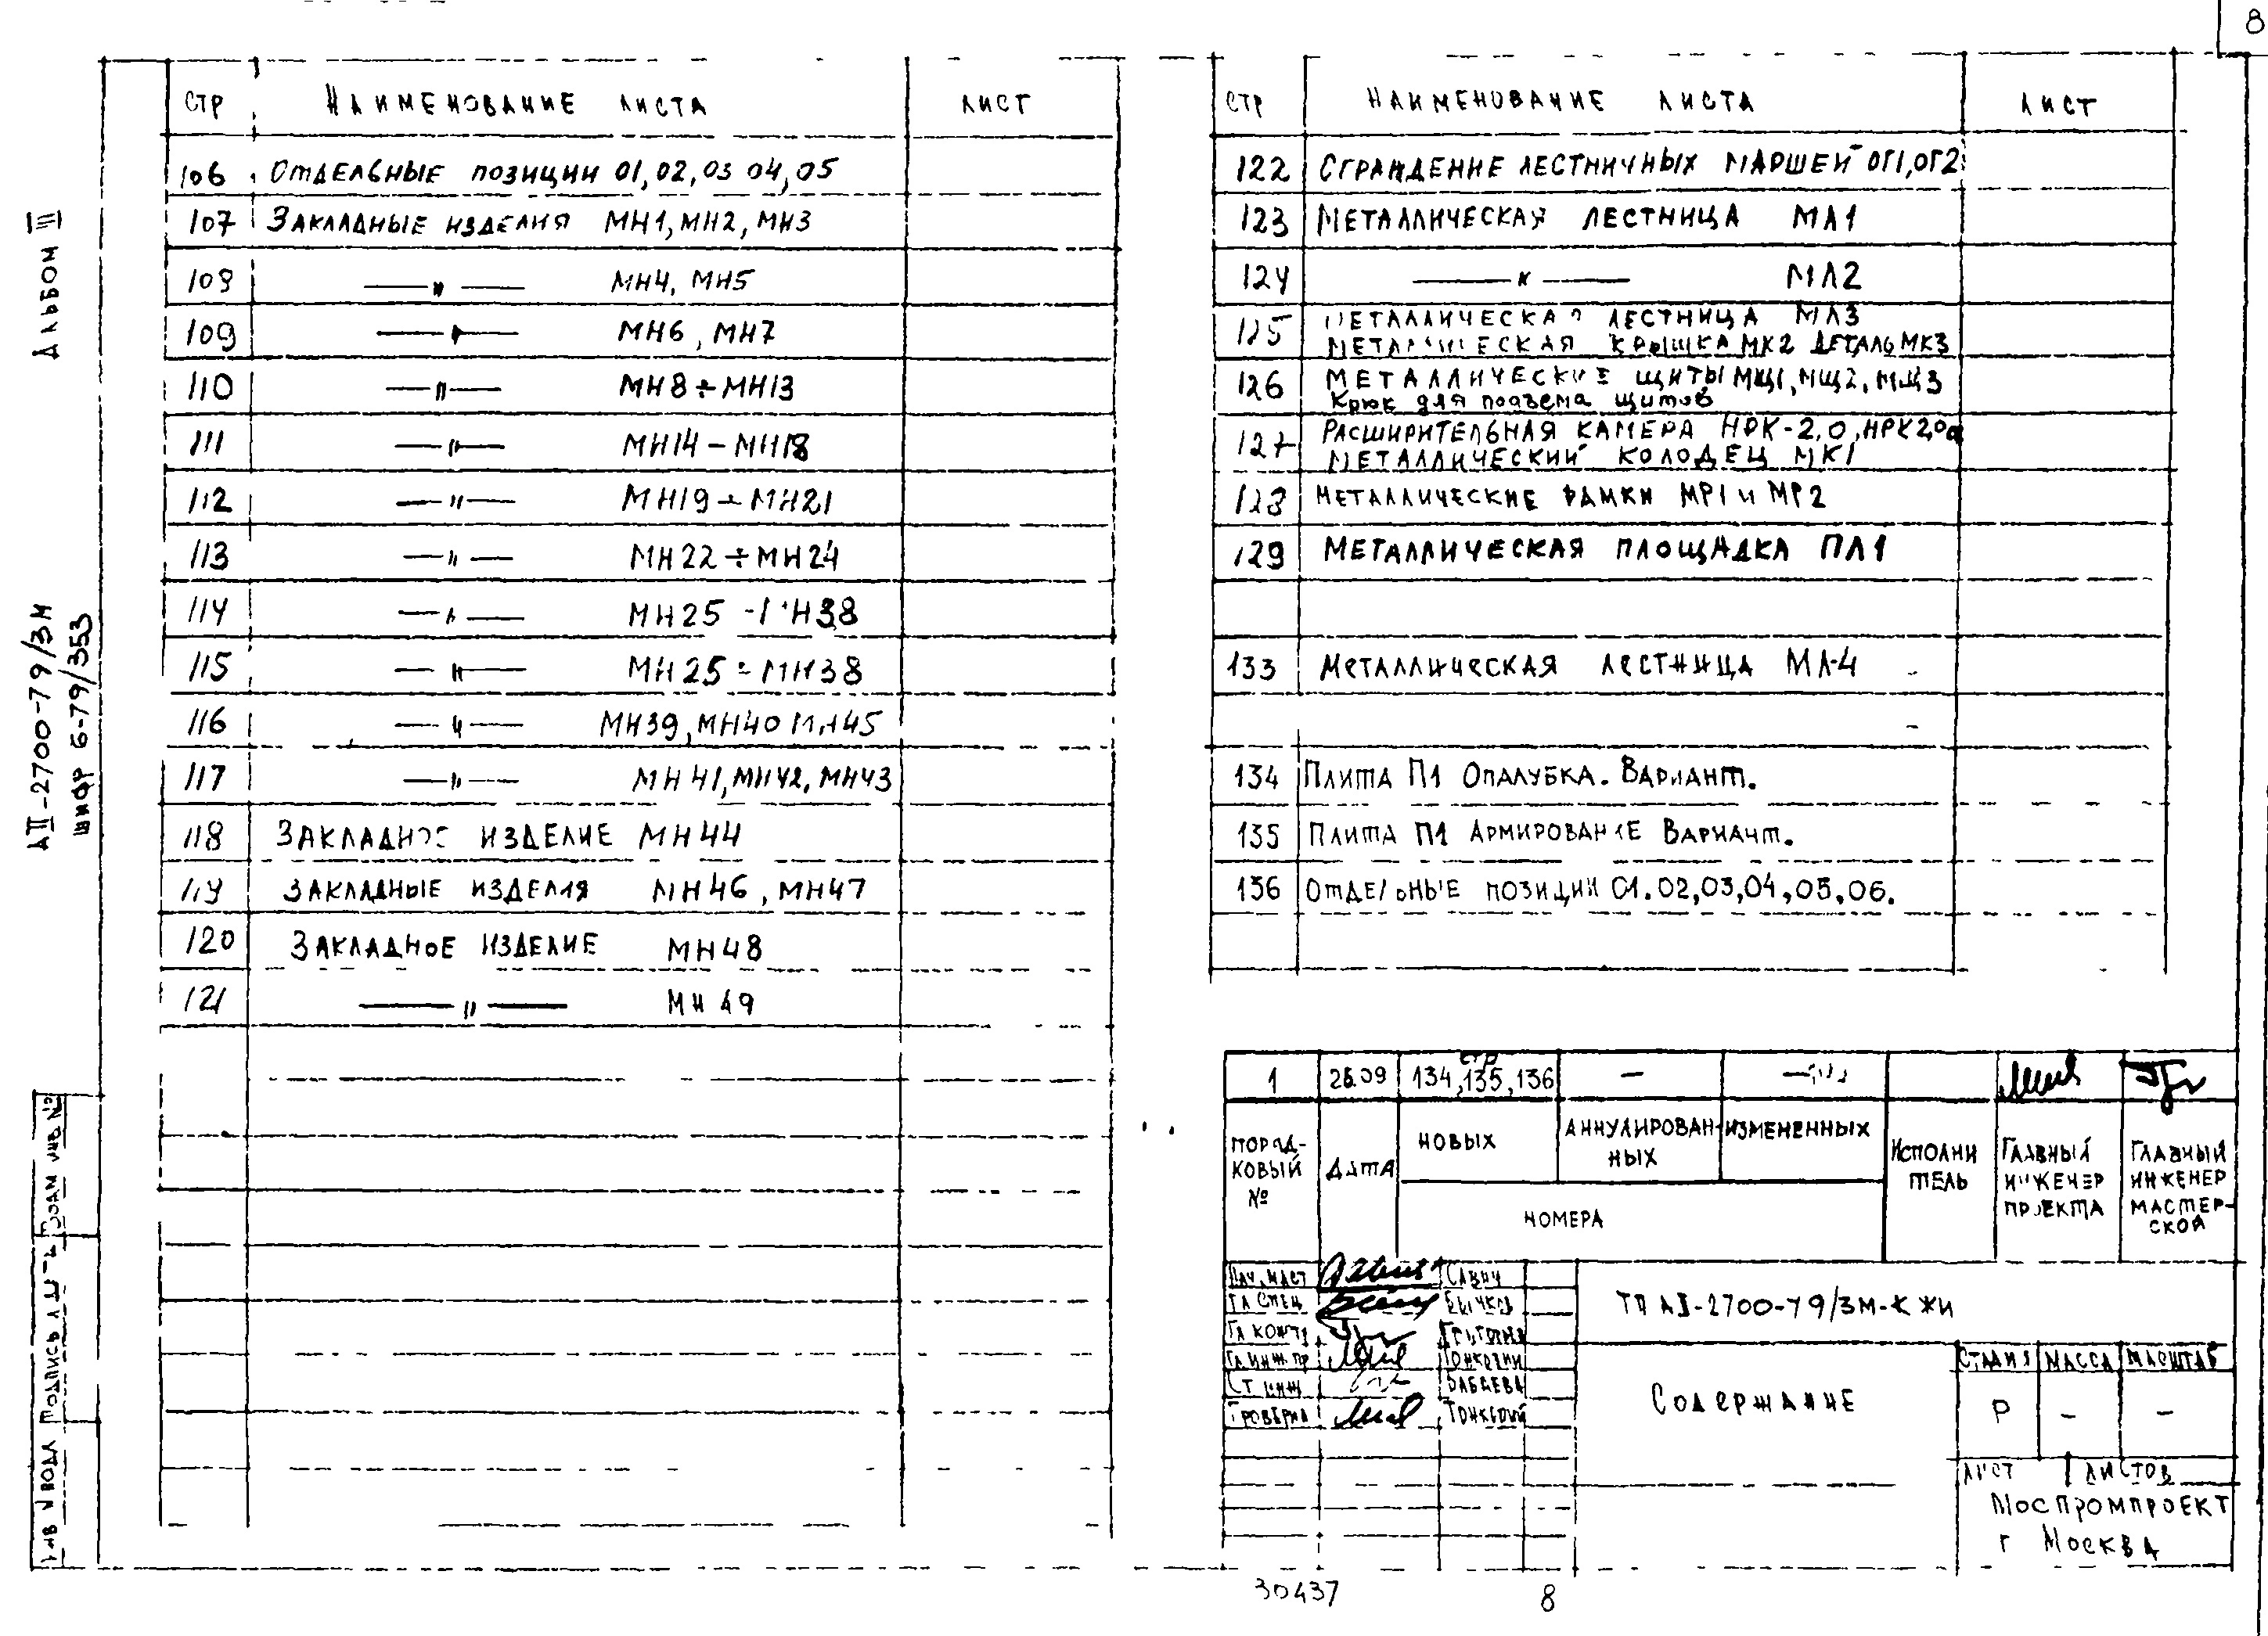 8
АЛЬБОМ III
АII-2700-79/3М
ШИФР 6-79/353
СТР НАИМЕНОВАНИЕ ЛИСТА ЛИСТ
106 ОТДЕЛЬНЫЕ ПОЗИЦИИ 01, 02, 03 04, 05
107 ЗАКЛАДНЫЕ ИЗДЕЛИЯ МН1, МН2, МН3
108 —"— МН4, МН5
109 —"— МН6, МН7
110 —"— МН8 ÷ МН13
111 —"— МН14 – МН18
112 —"— МН19 ÷ МН21
113 —"— МН22 ÷ МН24
114 —"— МН25 - МН38
115 —"— МН25 ÷ МН38
116 —"— МН39, МН40 МН45
117 —"— МН41, МН42, МН43
118 ЗАКЛАДНОЕ ИЗДЕЛИЕ МН44
119 ЗАКЛАДНЫЕ ИЗДЕЛИЯ МН46, МН47
120 ЗАКЛАДНОЕ ИЗДЕЛИЕ МН48
121 —"— МН49
СТР НАИМЕНОВАНИЕ ЛИСТА ЛИСТ
122 ОГРАЖДЕНИЕ ЛЕСТНИЧНЫХ МАРШЕЙ ОГ1, ОГ2
123 МЕТАЛЛИЧЕСКАЯ ЛЕСТНИЦА МЛ1
124 —"— МЛ2
125 МЕТАЛЛИЧЕСКАЯ ЛЕСТНИЦА МЛ3
МЕТАЛЛИЧЕСКАЯ КРЫШКА МК2 ДЕТАЛЬ МК3
126 МЕТАЛЛИЧЕСКИЕ ЩИТЫ МЩ1, МЩ2, МЩ3
Крюк для подъема щитов
127 РАСШИРИТЕЛЬНАЯ КАМЕРА НРК-2,0, НРК2,0а
МЕТАЛЛИЧЕСКИЙ КОЛОДЕЦ МК1
128 МЕТАЛЛИЧЕСКИЕ РАМКИ МР1 и МР2
129 МЕТАЛЛИЧЕСКАЯ ПЛОЩАДКА ПЛ1
133 МЕТАЛЛИЧЕСКАЯ ЛЕСТНИЦА МЛ-4
134 ПЛИТА П1 ОПАЛУБКА. ВАРИАНТ.
135 ПЛИТА П1 АРМИРОВАНИЕ ВАРИАНТ.
136 ОТДЕЛЬНЫЕ ПОЗИЦИИ 01. 02, 03, 04, 05, 06.
стр
1 134, 135, 136 — —
ПОРЯД-
КОВЫЙ
№
ДАТА
НОВЫХ
АННУЛИРОВАН-
НЫХ
ИЗМЕНЕННЫХ
НОМЕРА
ИСПОЛНИ
ТЕЛЬ
ГЛАВНЫЙ
ИНЖЕНЕР
ПРОЕКТА
ГЛАВНЫЙ
ИНЖЕНЕР
МАСТЕР-
СКОЙ
НАЧ. МАСТ САВИЧ
ГЛ СПЕЦ БЫЧКОВ
ГЛ КОНСТР
ГЛ ИНЖ ПР
СТ ИНЖ БАБАЕВА
ПРОВЕРИЛ
ТП АII-2700-79/3М-КЖИ
СОДЕРЖАНИЕ
СТАДИЯ МАССА МАСШТАБ
Р – –
ЛИСТ 1 ЛИСТОВ
МОСПРОМПРОЕКТ
г МОСКВА
ИНВ N ПОДЛ ПОДПИСЬ ВЗАМ ИНВ №
30437
8